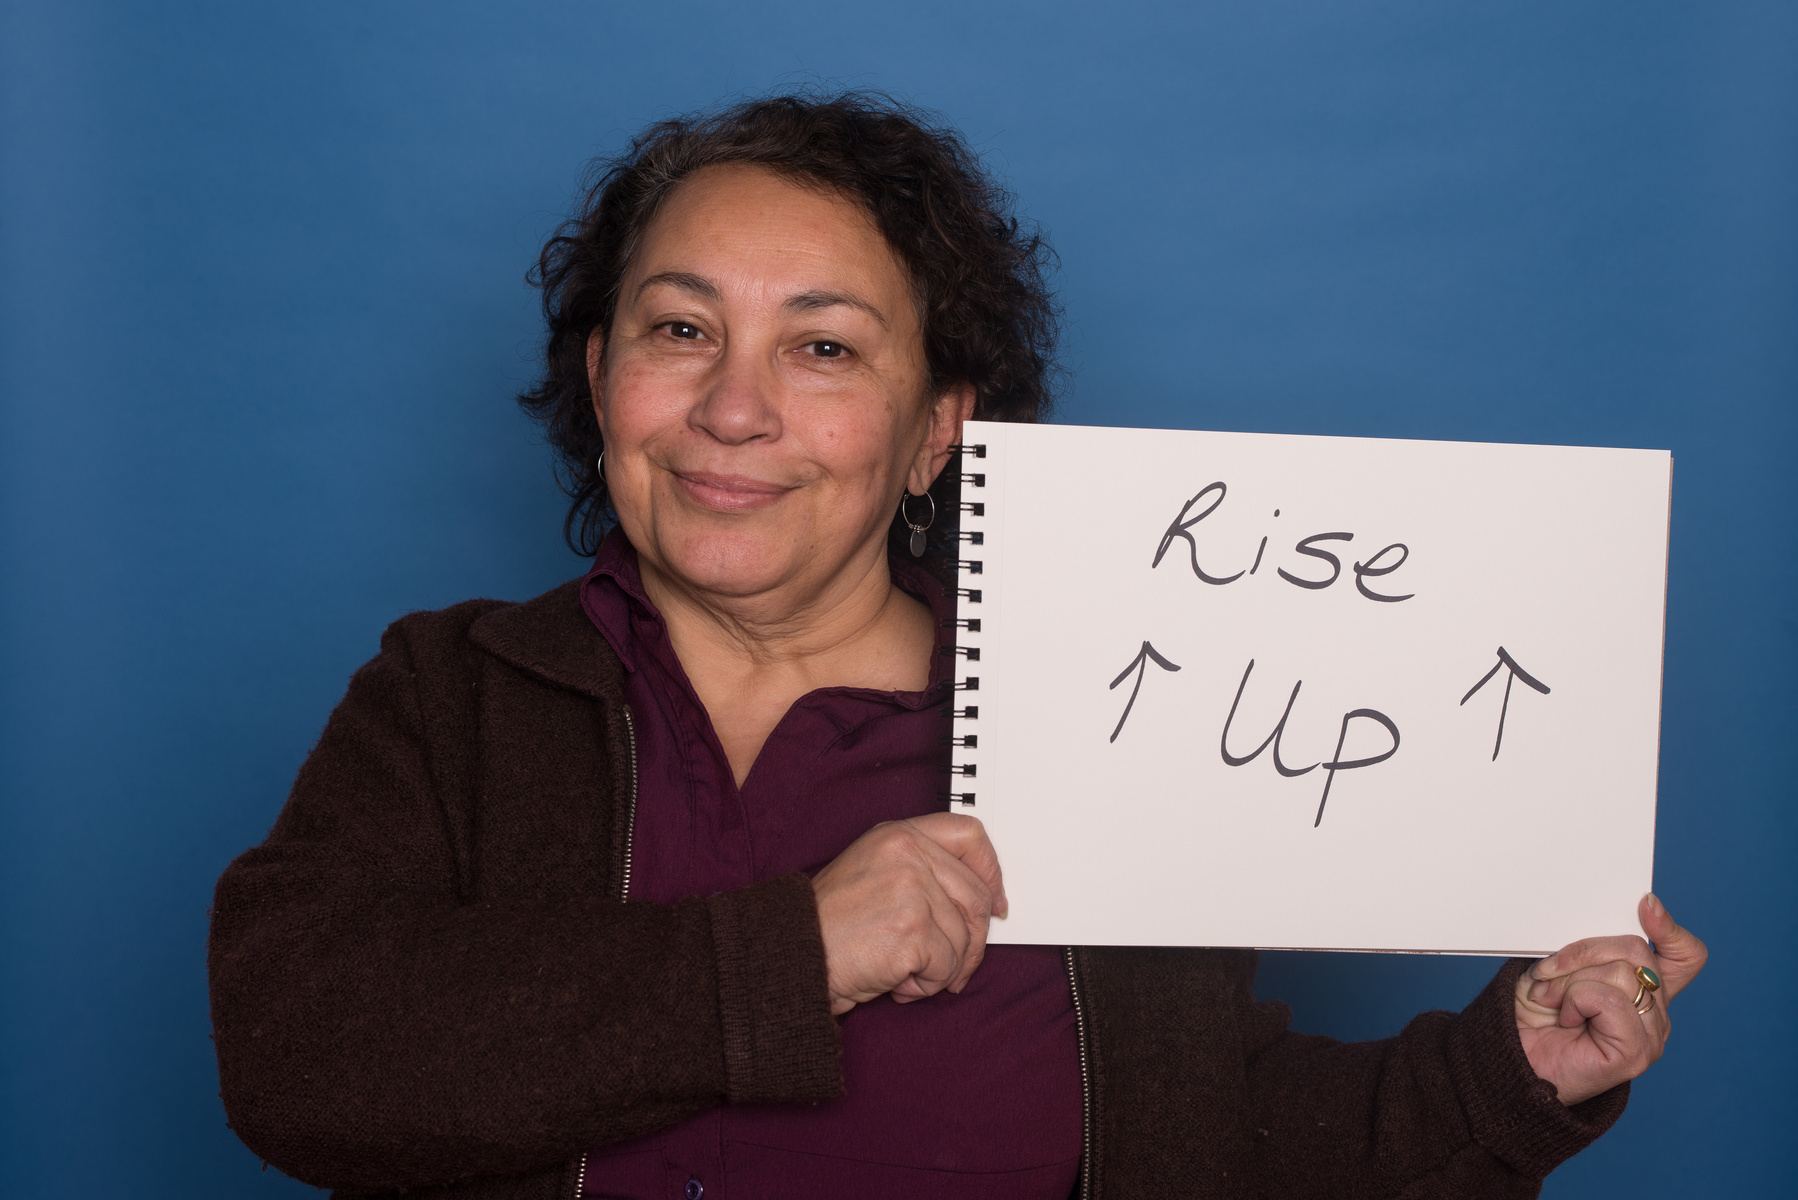 Rise
↑ Up ↑